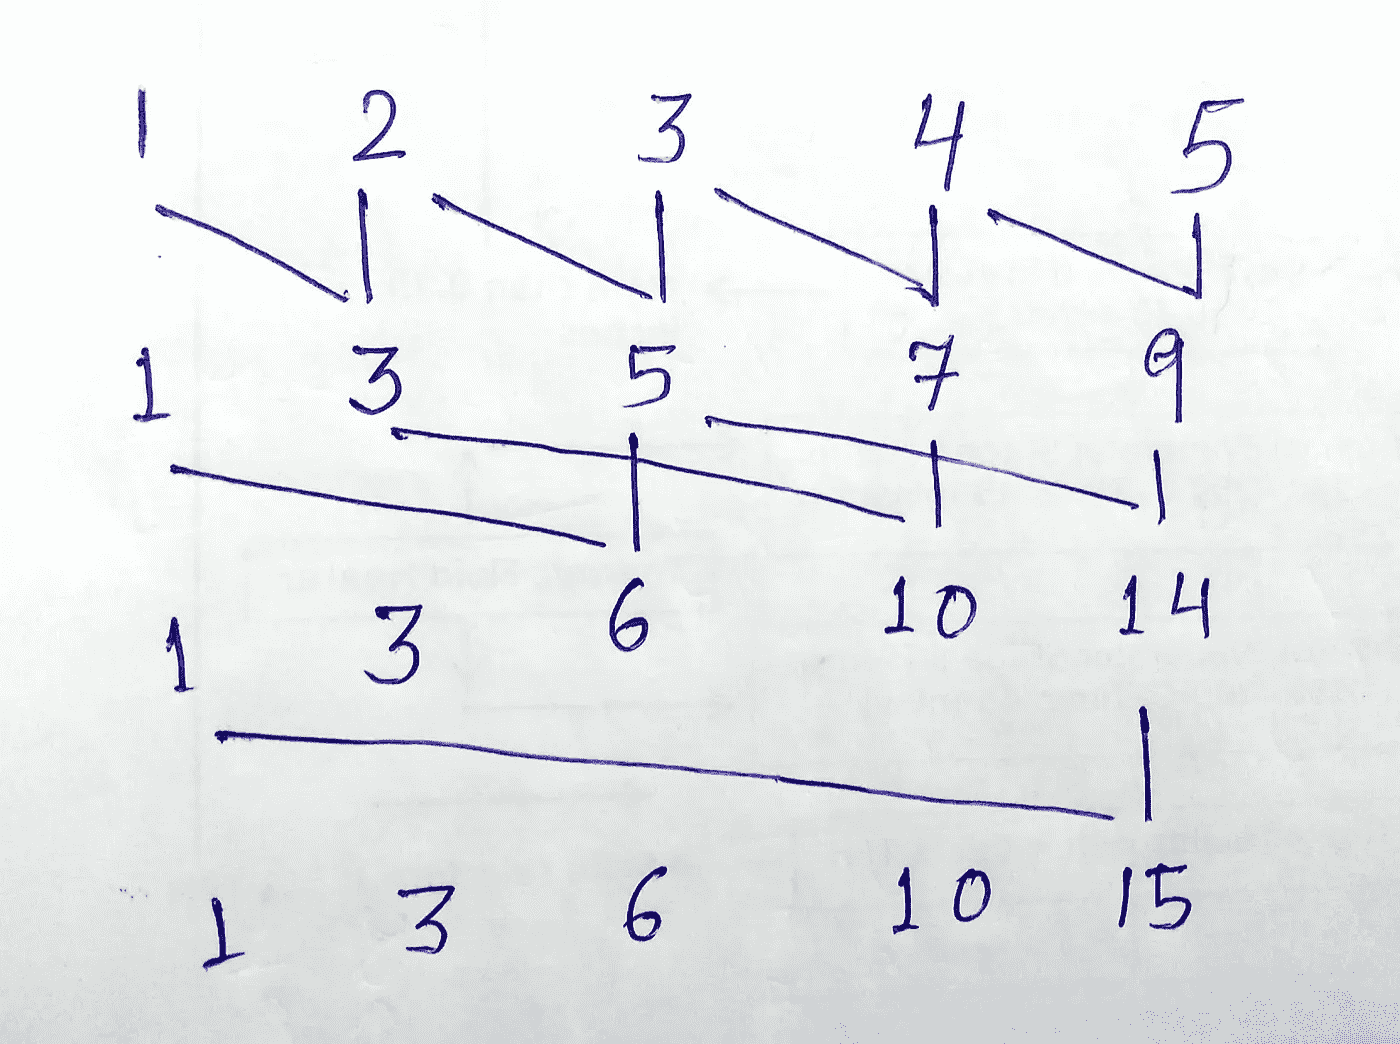 1 2 3 4 5
1 3 5 7 9
1 3 6 10 14
1 3 6 10 15